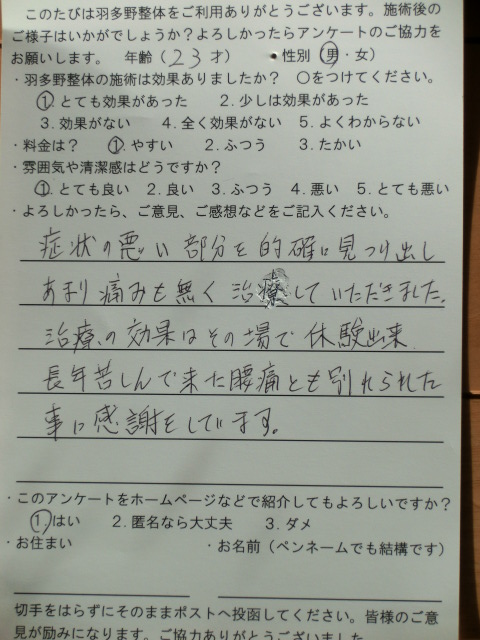 このたびは羽多野整体をご利用ありがとうございます。施術後の
ご様子はいかがでしょうか？よろしかったらアンケートのご協力を
お願いします。 年齢（23才） ・性別（男・女）
・羽多野整体の施術は効果ありましたか？ ○をつけてください。
①. とても効果があった 2. 少しは効果があった
3. 効果がない 4. 全く効果がない 5. よくわからない
・料金は？ ①. やすい 2. ふつう 3. たかい
・雰囲気や清潔感はどうですか？
①. とても良い 2. 良い 3. ふつう 4. 悪い 5. とても悪い
・よろしかったら、ご意見、ご感想などをご記入ください。
症状の悪い部分を的確に見つけ出し
あまり痛みも無く治療していただきました。
治療の効果はその場で休験出来
長年苦しんで来た腰痛とも別れられた
事に感謝をしています。
・このアンケートをホームページなどで紹介してもよろしいですか？
①. はい 2. 匿名なら大丈夫 3. ダメ
・お住まい ・お名前（ペンネームでも結構です）
切手をはらずにそのままポストへ投函してください。皆様のご意
見が励みになります。ご協力ありがとうございました